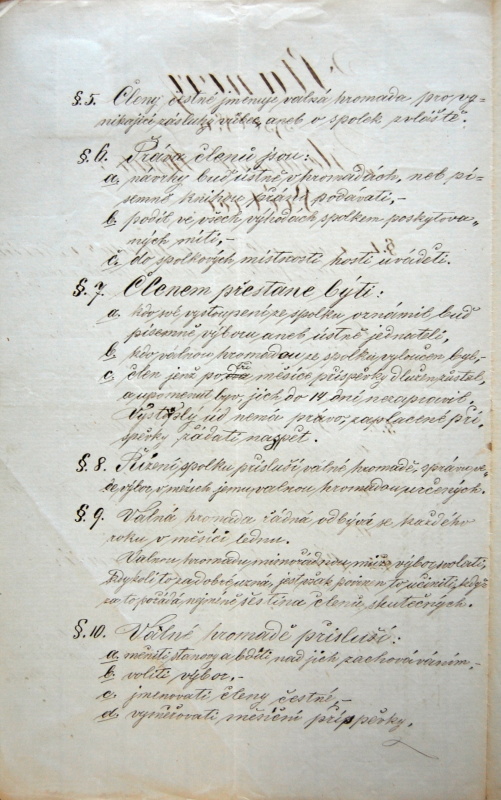 §. 5. Členy čestné jmenuje valná hromada pro vy-
nikající zásluhy vůbec aneb o spolek zvláště.
§. 6. Práva členů jsou:
a, návrhy buď ústně v hromadách, neb pí-
semně knihou přání podávati,-
b, podíl ve všech výhodách spolkem poskytova-
ných míti,-
c, do spolkových místností hosti uváděti.
§. 7. Členem přestane býti:
a, kdo své vystoupení ze spolku oznámil buď
písemně výboru aneb ústně jednateli,
b, kdo valnou hromadou ze spolku vyloučen byl,-
c, člen jenž po tři měsíce příspěvky dlužen zůstal,
a upomenut byv, jich do 14 dní nezapravil.
Vystouplý úd nemá právo, zaplacené pří-
spěvky žádati nazpět.
§. 8. Řízení spolku přísluší valné hromadě, správu ve-
de výbor v mezích jemu valnou hromadou určených.
§. 9. Valná hromada řádná odbývá se každého
roku v měsíci lednu.
Valnou hromadu mimořádnou může výbor svolati,
kdykoli to za dobré uzná, jest však povinen to učiniti, když
za to požádá nejméně šestina členů skutečných.
§. 10. Valné hromadě přísluší:
a, měniti stanovy a bdíti nad jich zachováváním,-
b, voliti výbor,-
c, jmenovati členy čestné,-
d, vyměřovati měsíční příspěvky.